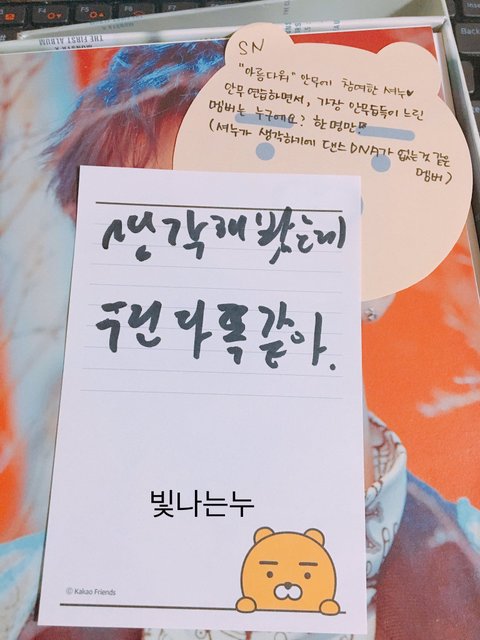 THE FIRST ALBUM
SN
"아름다워" 안무에 참여한 셔누♥
안무 연습하면서, 가장 안무습득이 느린
멤버는 누구에요? 한 명만!!
(셔누가 생각하기에 댄스 DNA가 없는것 같은
멤버)
생각해봤는데
우린 다 똑같아.
빛나는누
© Kakao Friends